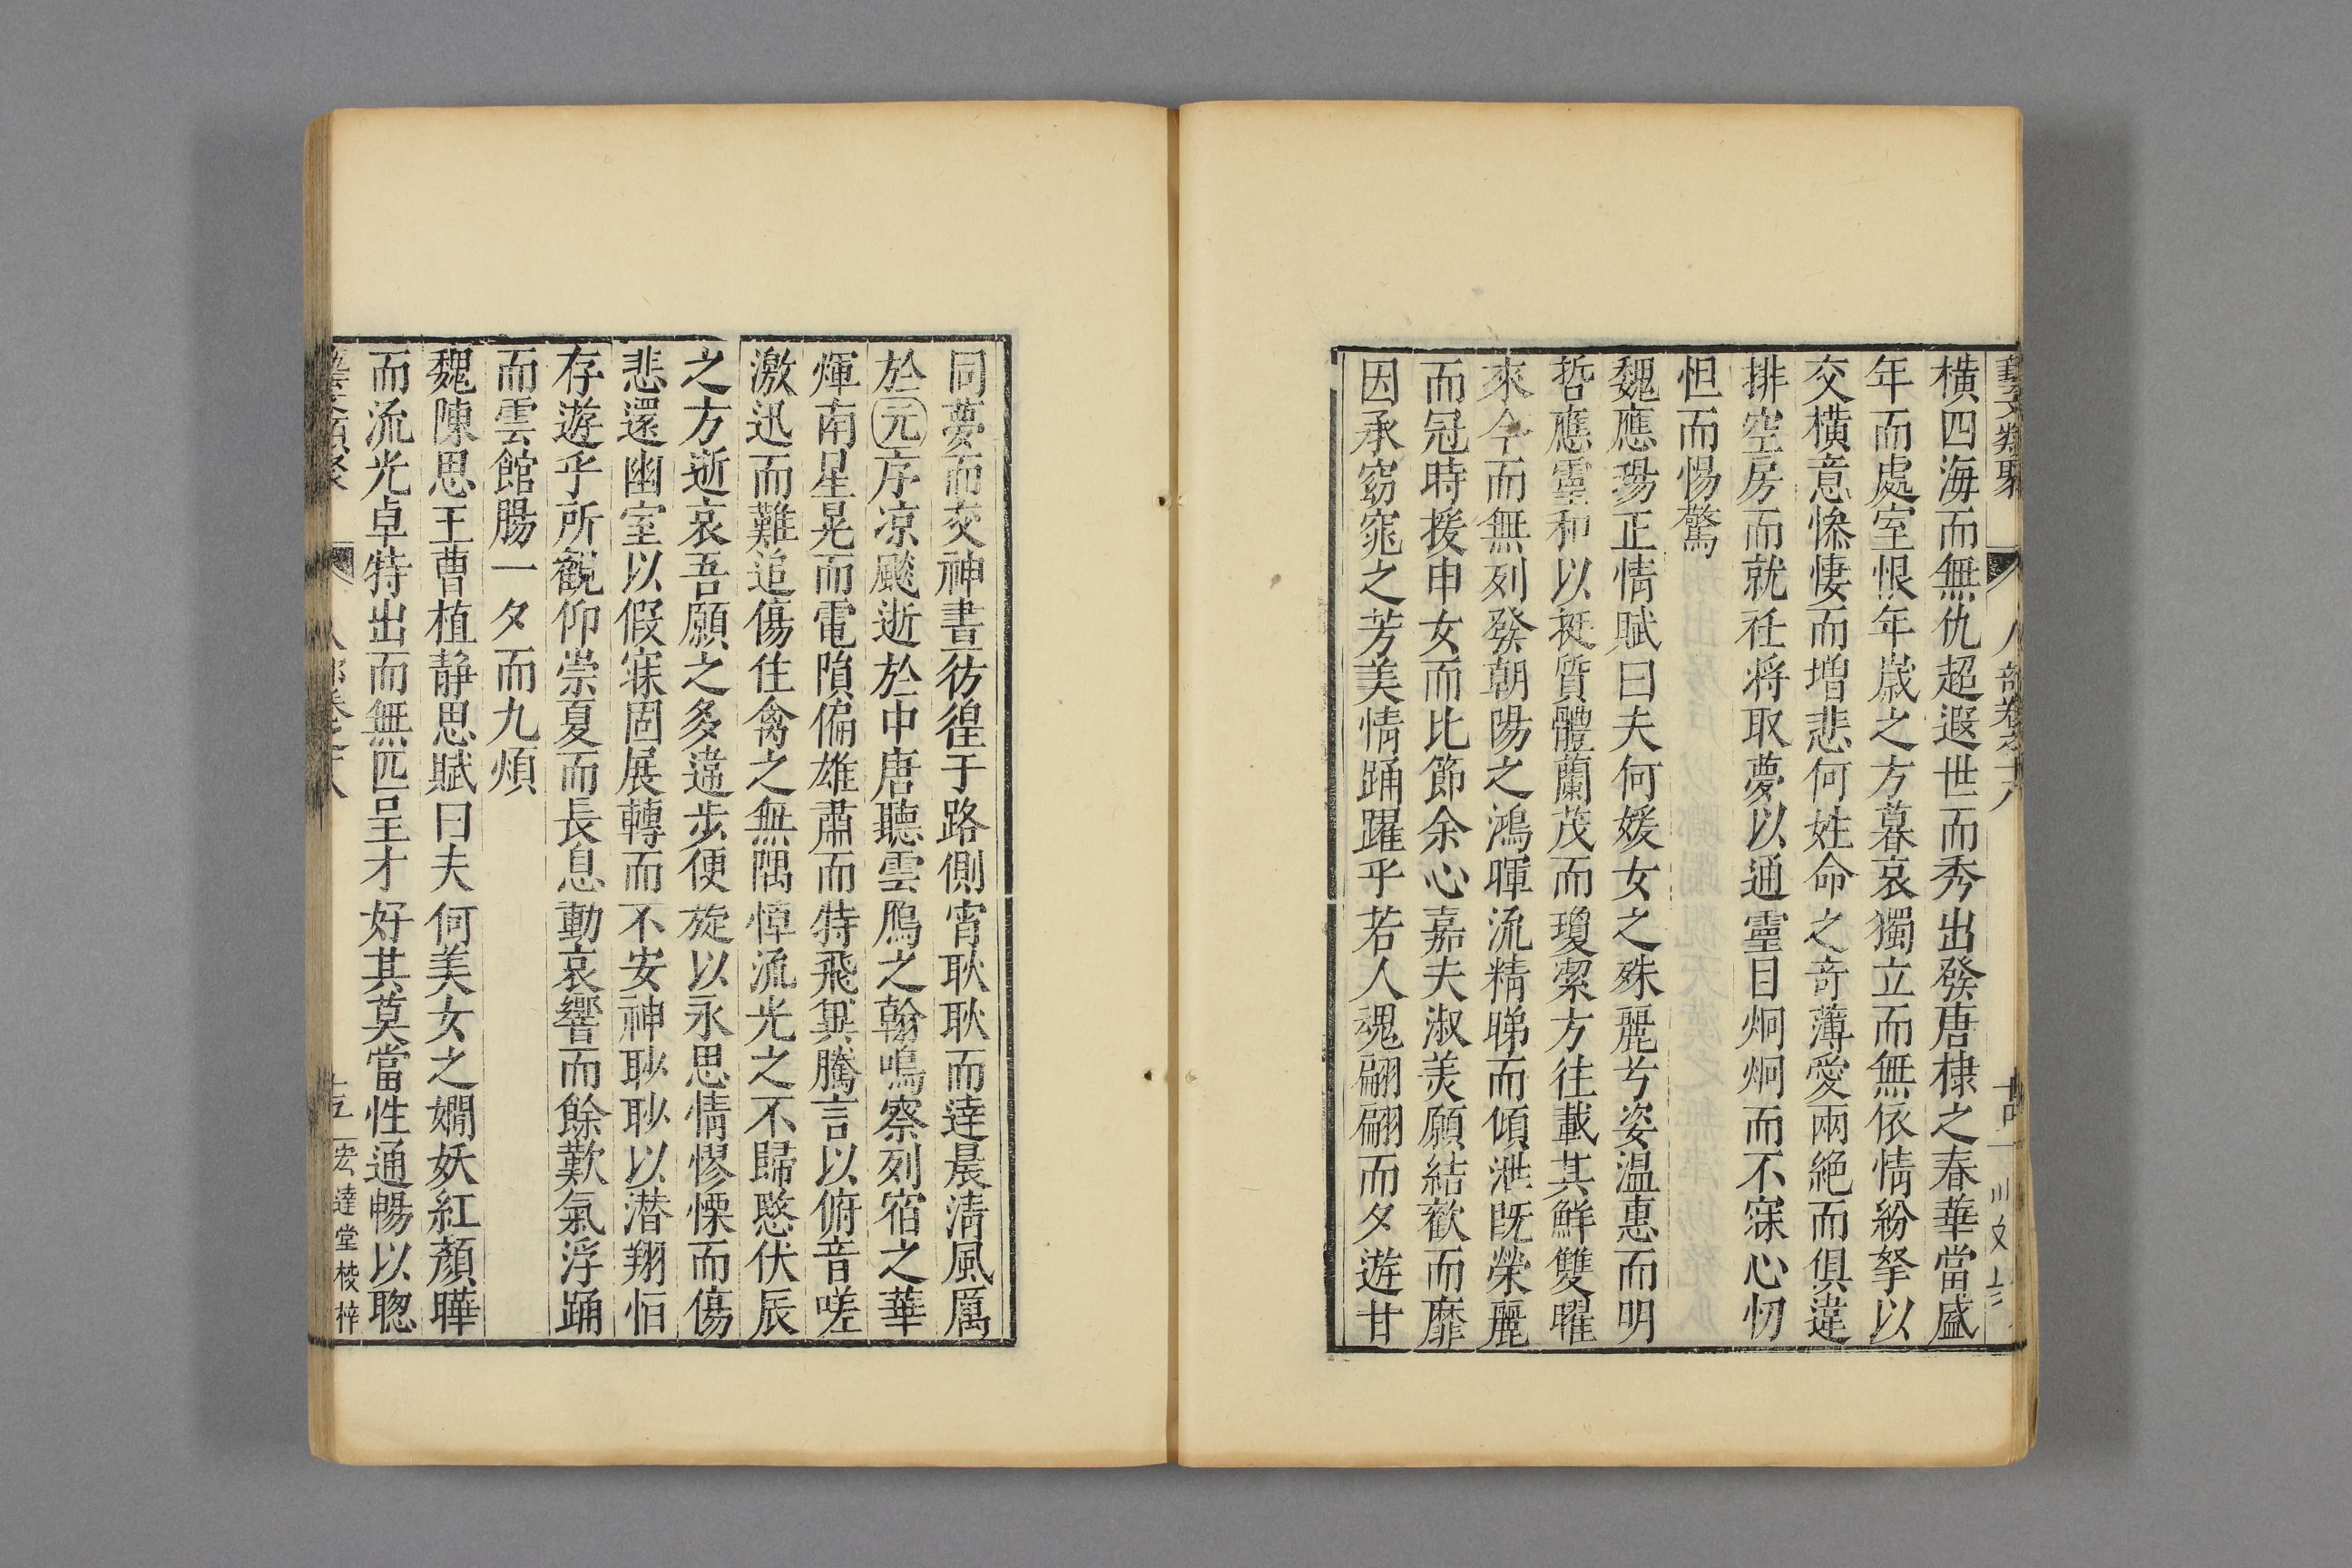 藝文類聚 人部卷之十八
橫四海而無仇超遐世而秀出發唐棣之春華當盛
年而處室恨年歲之方暮哀獨立而無依情紛拏以
交橫意慘悽而增悲何姓命之奇薄愛兩絶而俱違
排空房而就衽将取夢以通靈目炯炯而不寐心忉
怛而惕驚
魏應瑒正情賦曰夫何媛女之殊麗兮姿温惠而明
哲應靈和以挺質體蘭茂而瓊潔方往載其鮮雙曜
來今而無列發朝陽之鴻暉流精睇而傾泄既榮麗
而冠時援申女而比節余心嘉夫淑羙願結歡而靡
因承窈窕之芳美情踊躍乎若人魂翩翩而夕遊甘
同夢而交神晝彷徨于路側宵耿耿而達晨淸風厲
於元序凉飈逝於中唐聽雲鴈之翰鳴察列宿之華
煇南星晃而電隕偏雄肅而特飛兾騰言以俯音嗟
激迅而難追傷住禽之無隅悼流光之不歸愍伏辰
之方逝哀吾願之多違步便旋以永思情憀慄而傷
悲還幽室以假寐固展轉而不安神耿耿以潜翔恒
存遊乎所觀仰崇夏而長息動哀響而餘歎氣浮踊
而雲館腸一夕而九煩
魏陳思王曹植静思賦曰夫何美女之嫺妖紅顏曄
而流光卓特出而無匹呈才好其莫當性通暢以聰
藝文類聚 人部卷之十八 十五 宏達堂校梓